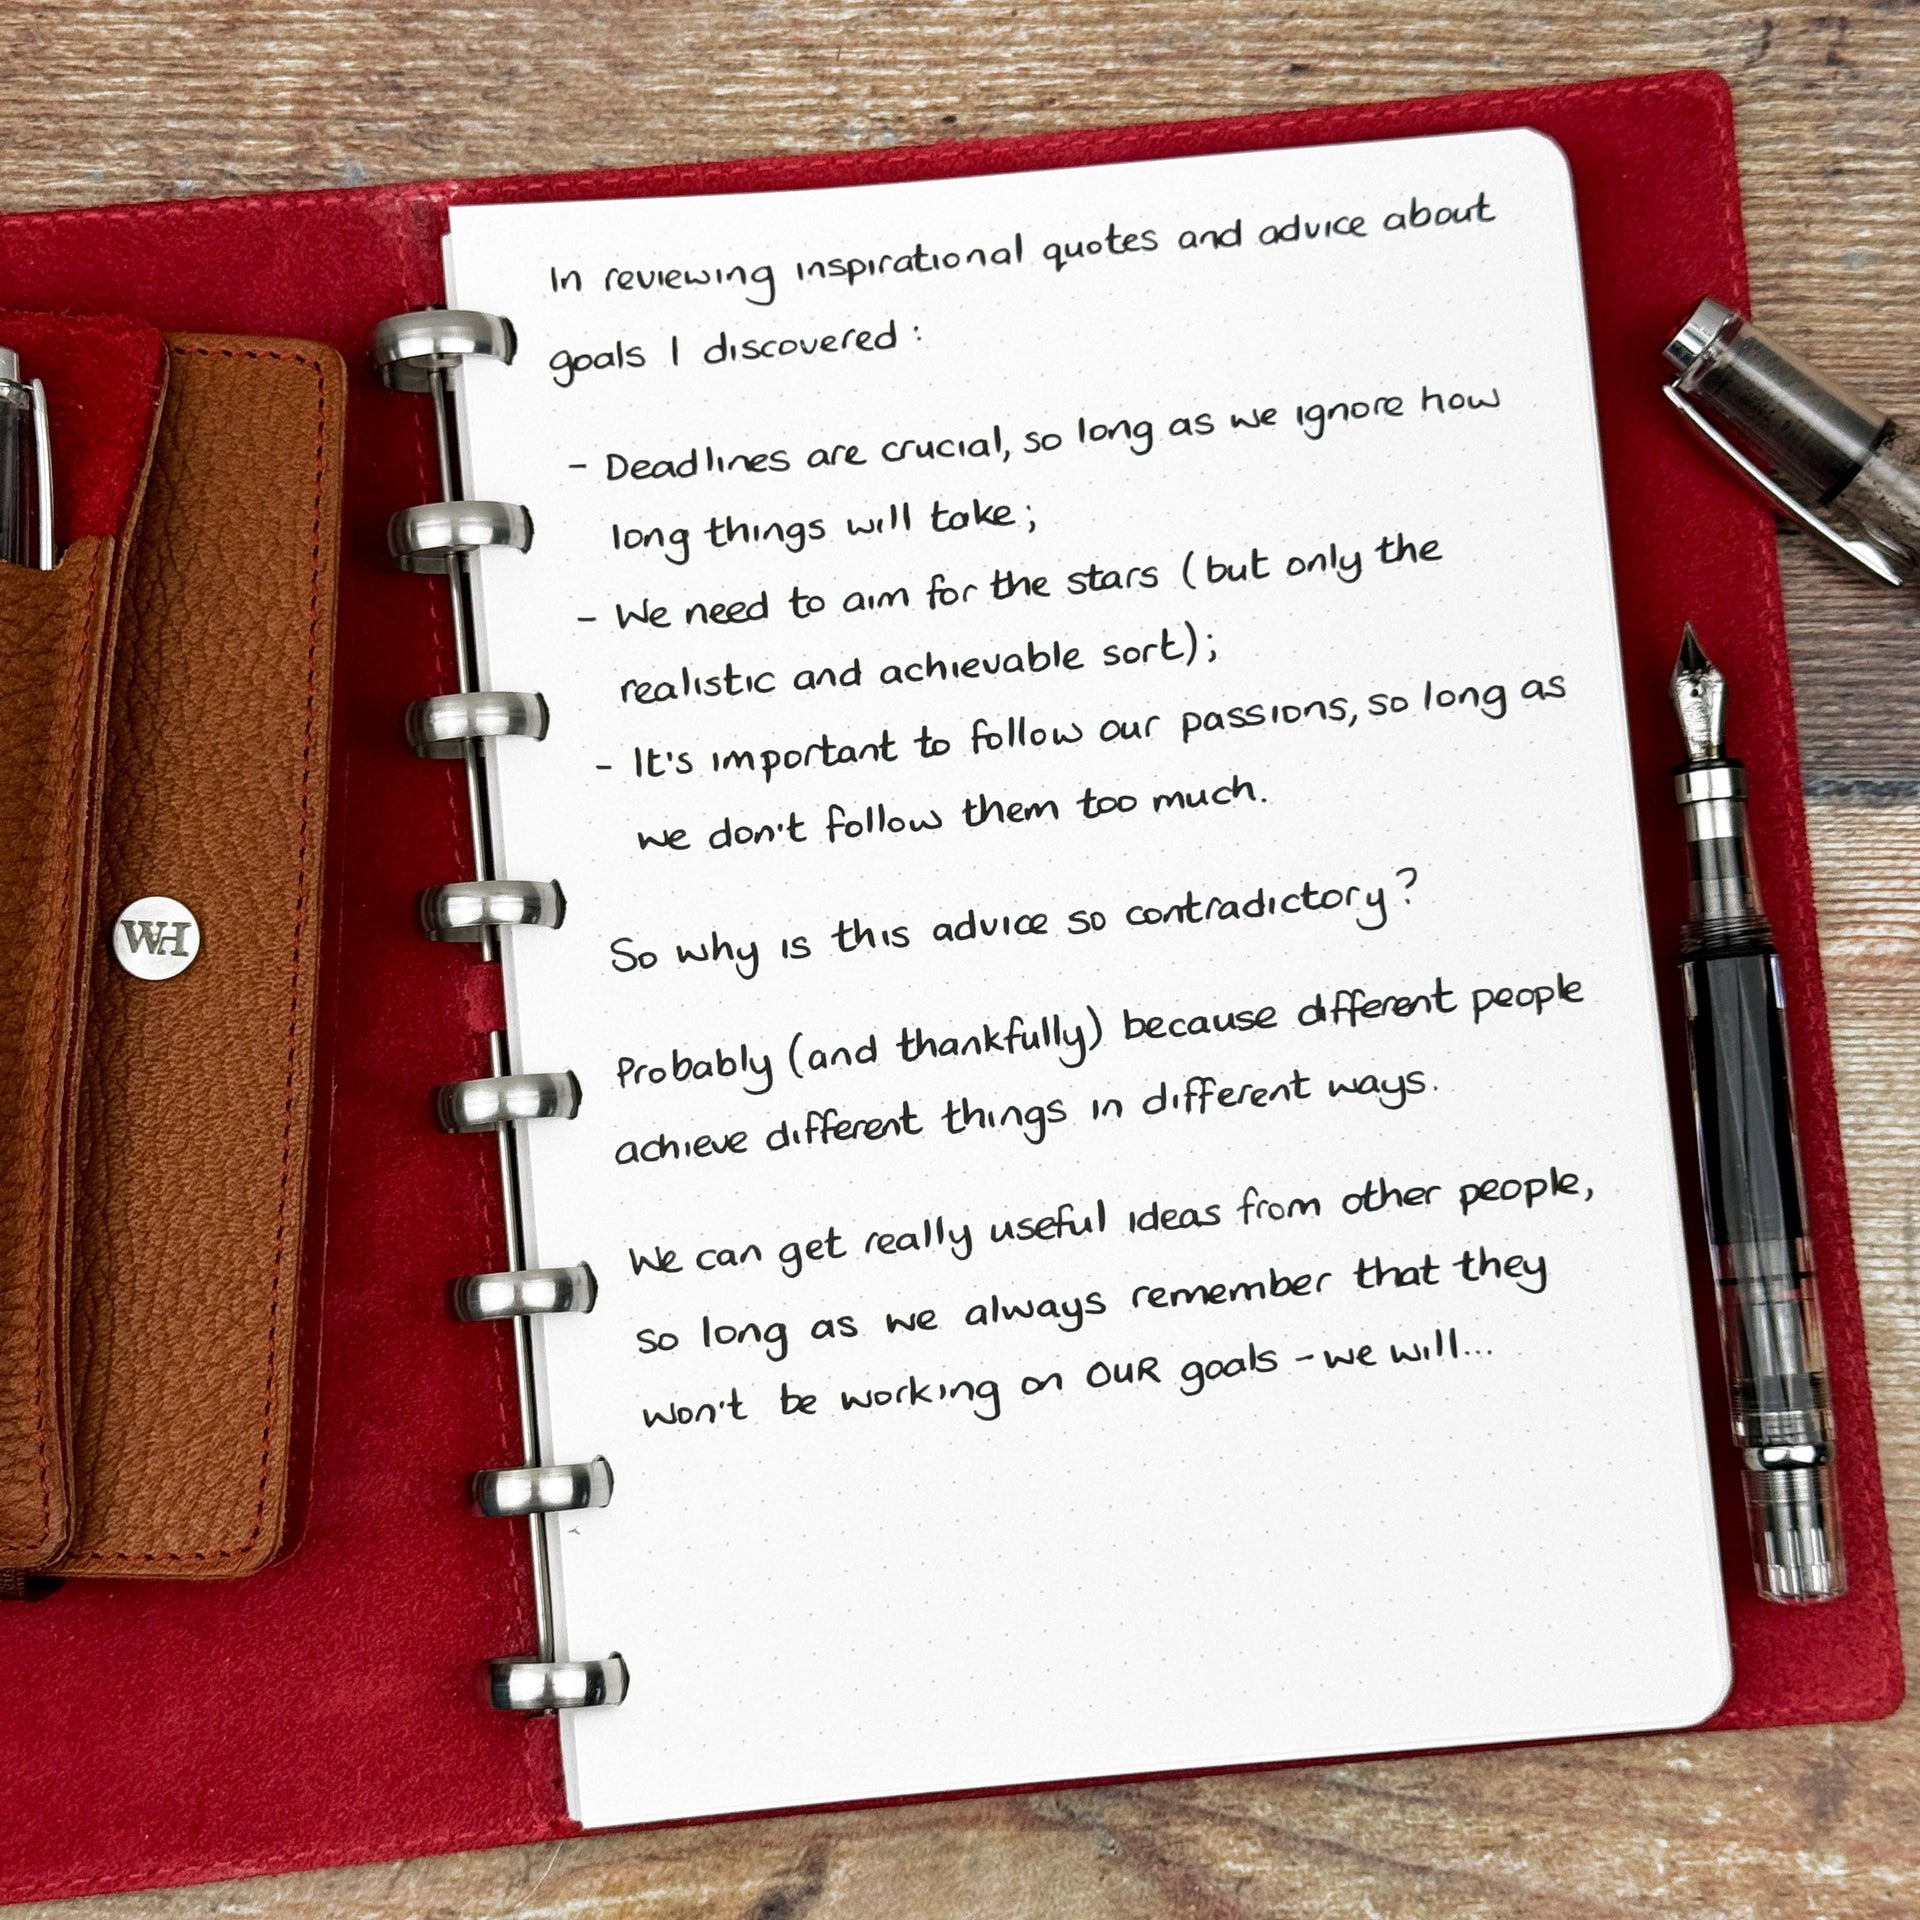 In reviewing inspirational quotes and advice about
goals I discovered:
- Deadlines are crucial, so long as we ignore how
long things will take;
- We need to aim for the stars (but only the
realistic and achievable sort);
- It's important to follow our passions, so long as
we don't follow them too much.
So why is this advice so contradictory?
Probably (and thankfully) because different people
achieve different things in different ways.
We can get really useful ideas from other people,
so long as we always remember that they
won't be working on OUR goals - we will...
WH